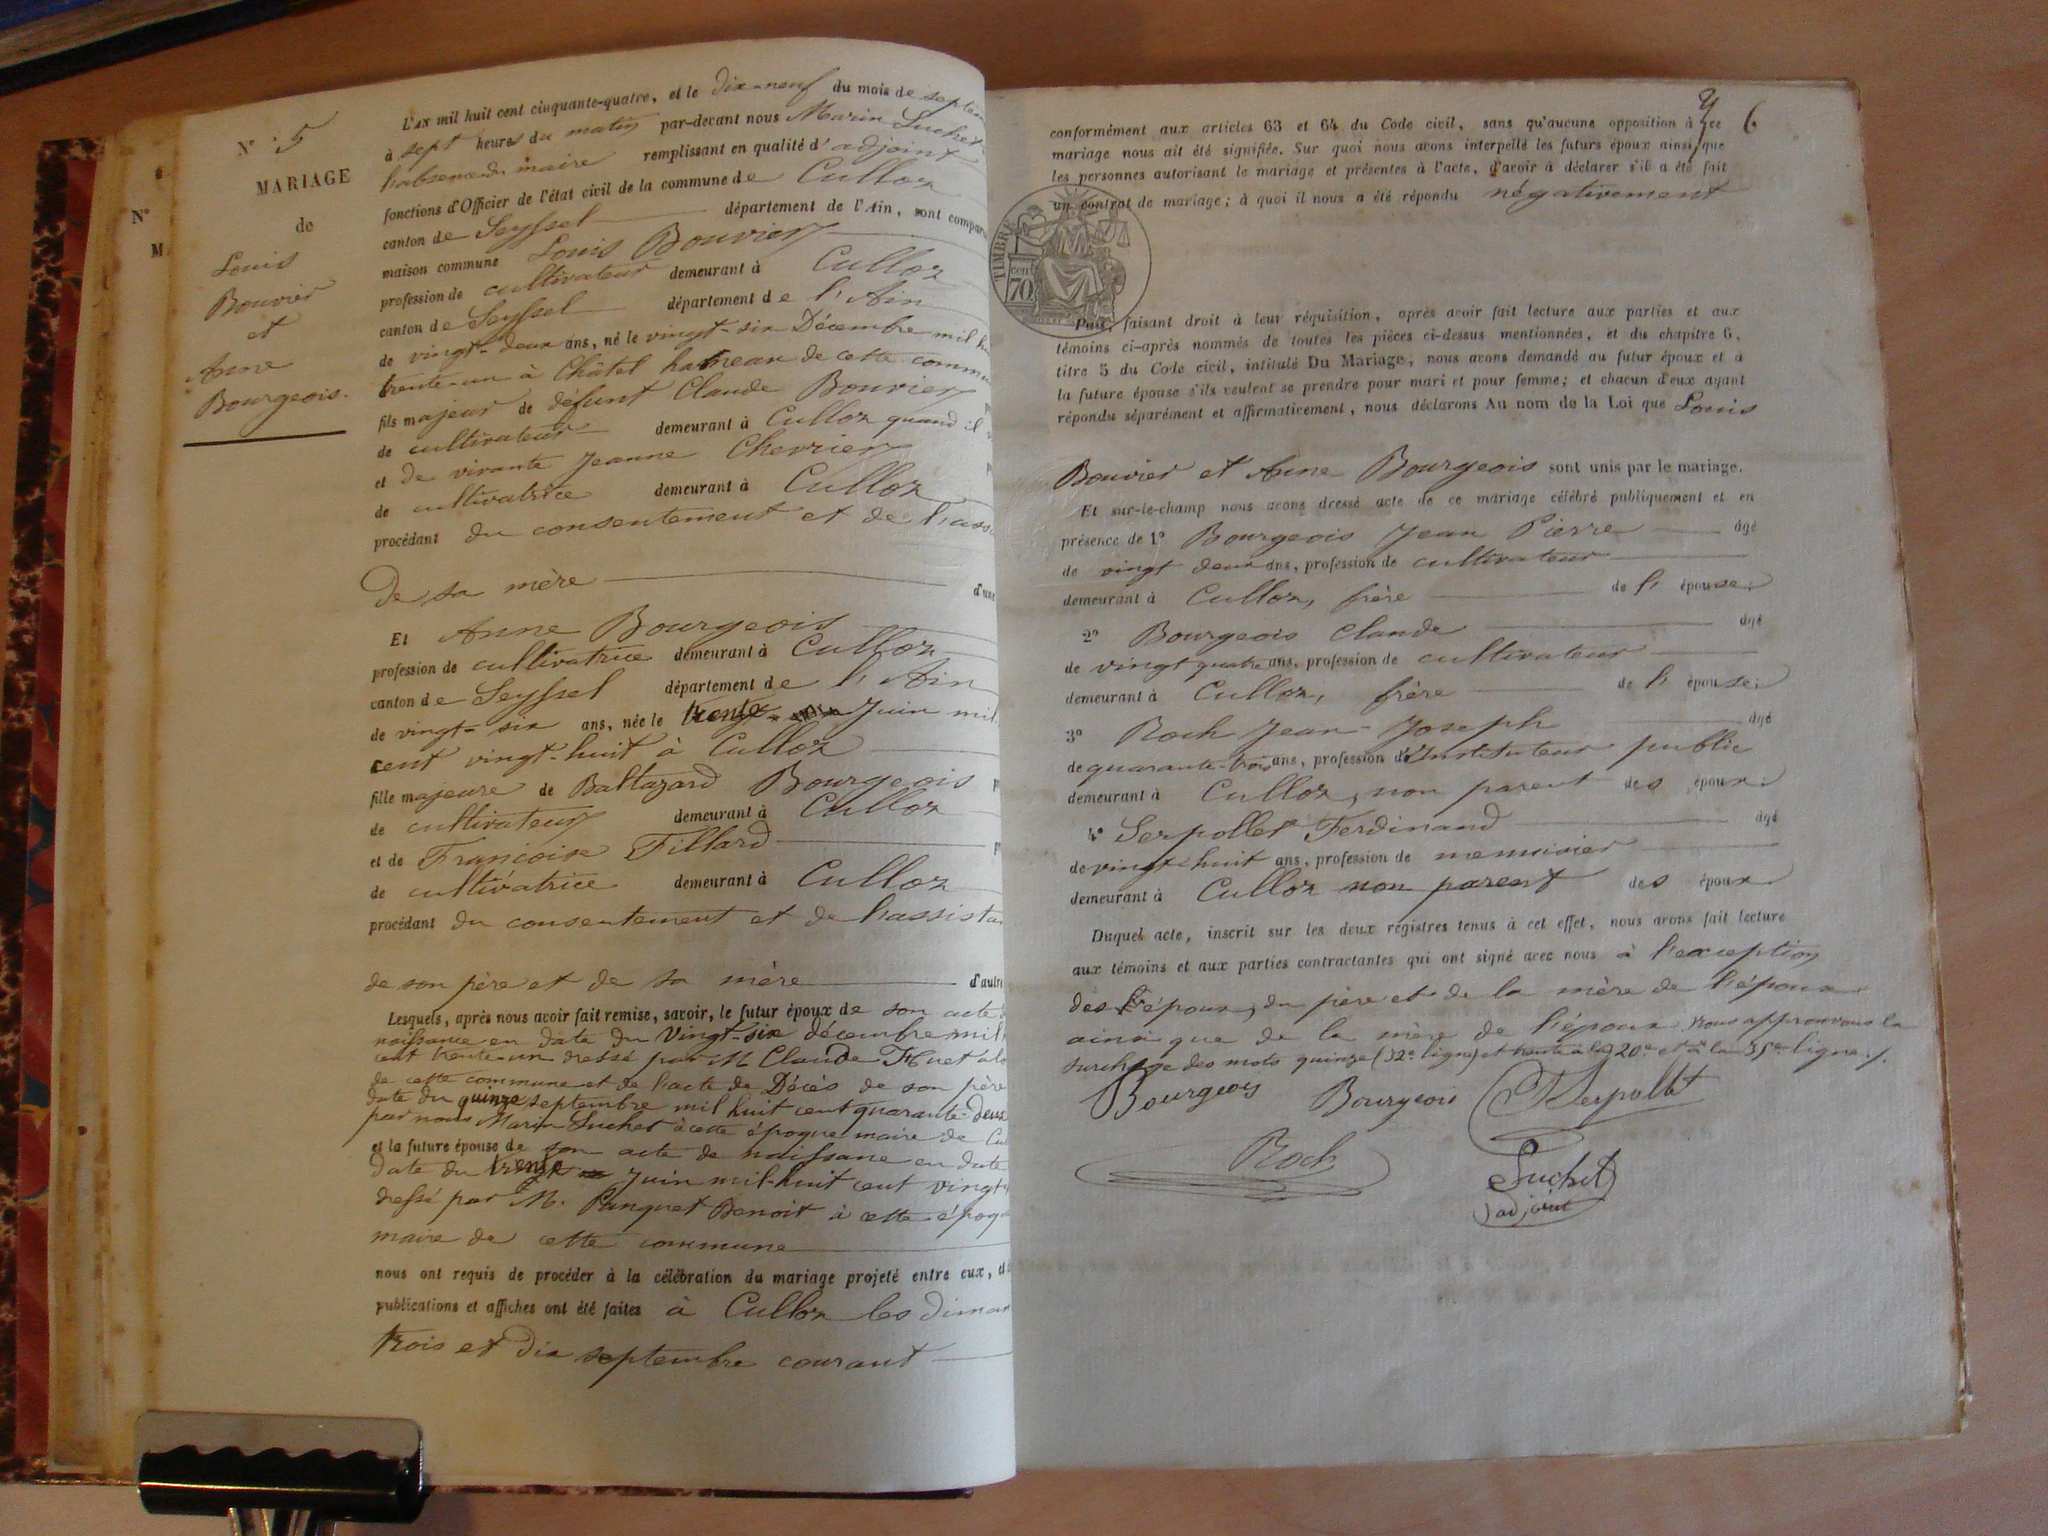 N° 5
MARIAGE
de
Louis
Bouvier
et
Anne
Bourgeois.
N°
M
L'AN mil huit cent cinquante-quatre, et le dix-neuf du mois de septem
à sept heures du matin par-devant nous Marin Suchet
l'absence du maire remplissant en qualité d'adjoint
fonctions d'Officier de l'état civil de la commune de Culloz
canton de Seyssel département de l'Ain, sont compar
maison commune Louis Bouvier
profession de cultivateur demeurant à Culloz
canton de Seyssel département de l'Ain
de vingt-deux ans, né le vingt-six Décembre mil hu
trente-un à Châtel hameau de cette commu
fils majeur de défunt Claude Bouvier
de cultivateur demeurant à Culloz quand il
et de vivante Jeanne Chevrier
de cultivatrice demeurant à Culloz
procédant du consentement et de l'assi
de sa mère d'une
Et Anne Bourgeois
profession de cultivatrice demeurant à Culloz
canton de Seyssel département de l'Ain
de vingt-six ans, née le trente Juin mil
cent vingt-huit à Culloz
fille majeure de Baltazard Bourgeois p
de cultivateur demeurant à Culloz
et de Françoise Fillard p
de cultivatrice demeurant à Culloz
procédant du consentement et de l'assistan
de son père et de sa mère d'autre
Lesquels, après nous avoir fait remise, savoir, le futur époux de son acte
naissance en date du vingt-six décembre mil
cent trente-un dressé par M Claude Huet
de cette commune et de l'acte de Décès de son père
date du quinze septembre mil huit cent quarante-deux
par nous Marin Suchet à cette époque maire de Cu
et la future épouse de son acte de naissance en date
date du trente Juin mil-huit cent vingt
dressé par M. Punguet Benoit à cette époq
maire de cette commune
nous ont requis de procéder à la célébration du mariage projeté entre eux, et
publications et affiches ont été faites à Culloz les diman
trois et dix septembre courant
6
conformément aux articles 63 et 64 du Code civil, sans qu'aucune opposition à ce
mariage nous ait été signifiée. Sur quoi nous avons interpellé les futurs époux ainsi que
les personnes autorisant le mariage et présentes à l'acte, d'avoir à déclarer s'il a été fait
un contrat de mariage; à quoi il nous a été répondu négativement
TIMBRE
70 cent
Puis, faisant droit à leur réquisition, après avoir fait lecture aux parties et aux
témoins ci-après nommés de toutes les pièces ci-dessus mentionnées, et du chapitre 6,
titre 5 du Code civil, intitulé Du Mariage, nous avons demandé au futur époux et à
la future épouse s'ils veulent se prendre pour mari et pour femme; et chacun d'eux ayant
répondu séparément et affirmativement, nous déclarons Au nom de la Loi que Louis
Bouvier et Anne Bourgeois sont unis par le mariage.
Et sur-le-champ nous avons dressé acte de ce mariage célébré publiquement et en
présence de 1° Bourgeois Jean Pierre âgé
de vingt deux ans, profession de cultivateur
demeurant à Culloz, frère de l'épouse;
2° Bourgeois Claude âgé
de vingt quatre ans, profession de cultivateur
demeurant à Culloz, frère de l'épouse;
3° Roch Jean-Joseph âgé
de quarante-trois ans, profession d'Instituteur public
demeurant à Culloz, non parent des époux;
4° Serpollet Ferdinand âgé
de vingt-huit ans, profession de menuisier
demeurant à Culloz non parent des époux
Duquel acte, inscrit sur les deux régistres tenus à cet effet, nous avons fait lecture
aux témoins et aux parties contractantes qui ont signé avec nous à l'exception
des époux, du père et de la mère de l'épouse
ainsi que de la mère de l'époux. Nous approuvons la
surcharge des mots quinze (32e ligne) et trente à la 20e et à la 35e ligne./.
Bourgeois Bourgeois Serpollet
Roch Suchet
adjoint